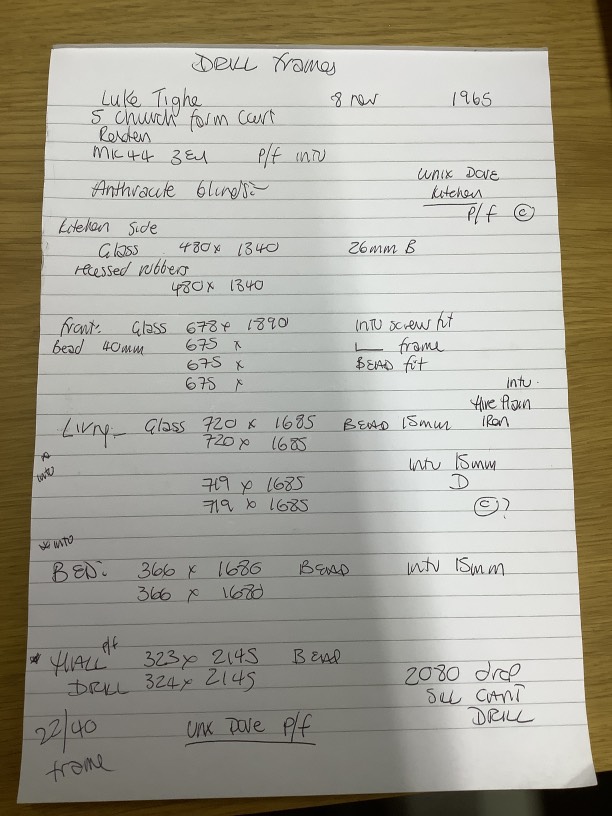 DRILL frames
Luke Tighe 8 nov 1965
5 church farm Court
MK44 3EU P/f INTU
Anthracite blinds
UNIX DOVE
kitchen
P/f ©
kitchen side
Glass 480 x 1340 26mm B
recessed rubbers
480 x 1340
front: Glass 678 x 1890 INTU screw fit
Bead 40mm 675 x frame
675 x BEAD fit
675 x
INTU
Glass 720 x 1685 BEAD 15mm IRON
720 x 1685
INTU
INTU 15mm
719 x 1685 D
719 x 1685 ©?
* INTU
BED: 366 x 1680 BEAD INTU 15mm
366 x 1680
P/f
* HALL 323 x 2145 BEAD
DRILL 324 x 2145 2080 drop
SILL CANT
DRILL
22/40 UNIX DOVE P/f
frame